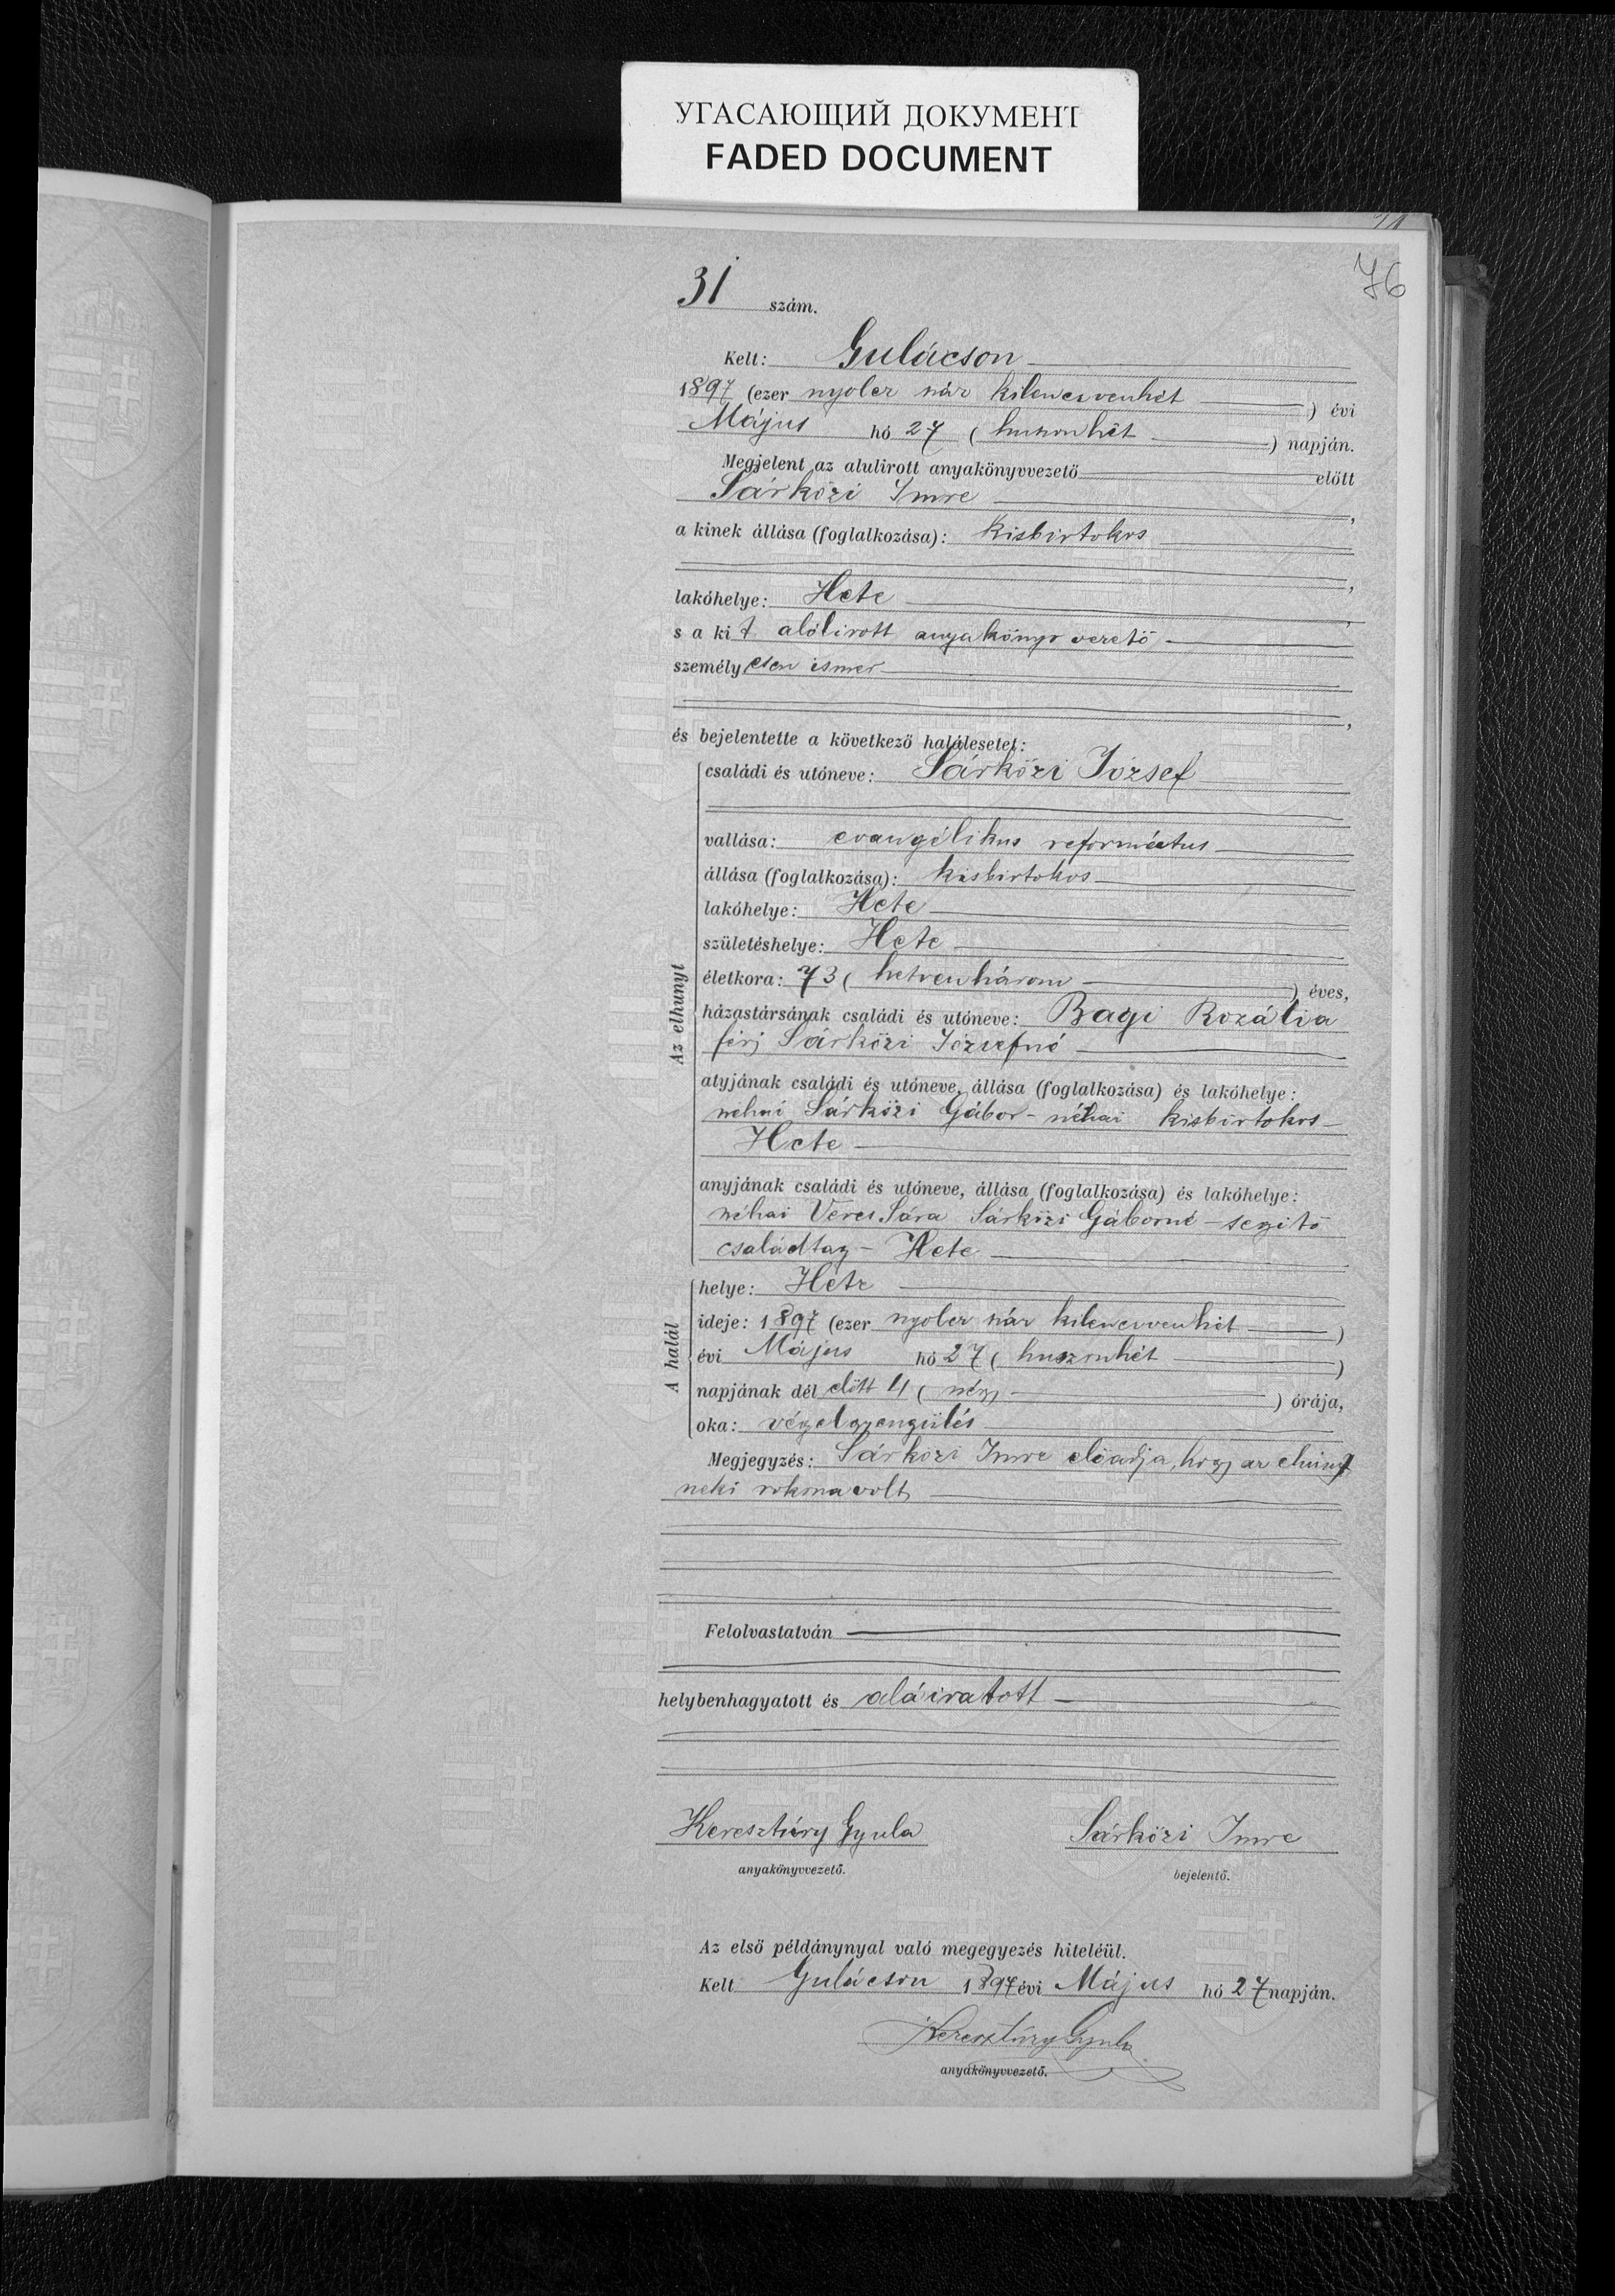 УГАСАЮЩИЙ ДОКУМЕНТ
FADED DOCUMENT
76
31 szám.
Kelt: Gulácson
1897 (ezer nyolcz ház kilenczvenhét ) évi
Május hó 27 ( huszonhét ) napján.
Megjelent az alulirott anyakönyvvezető előtt
Sárközi Imre ,
a kinek állása (foglalkozása): kisbirtokos
,
lakóhelye: Hete ,
s a kit alólirott anyakönyv vezető
személyesen ismer
,
és bejelentette a következő halálesetet:
családi és utóneve: Sárközi József
vallása: evangélikus református
állása (foglalkozása): kisbirtokos
lakóhelye: Hete
születéshelye: Hete
életkora: 73 ( hetvenhárom ) éves,
házastársának családi és utóneve: Bagi Rozália
férj Sárközi Józsefné
atyjának családi és utóneve, állása (foglalkozása) és lakóhelye:
néhai Sárközi Gábor - néhai kisbirtokos -
Hete
anyjának családi és utóneve, állása (foglalkozása) és lakóhelye:
néhai Veres Sára Sárközi Gáborné - segitő
családtag - Hete
Az elhunyt
helye: Hete
ideje: 1897 (ezer nyolcz ház kilenczvenhét )
évi Május hó 27 ( huszonhét )
napjának dél előtt 4 ( négy ) órája,
oka: végelgyengülés
A halál
Megjegyzés: Sárközi Imre előadja, hogy az elhunyt
neki rokona volt
Felolvastatván
helybenhagyatott és aláiratott
Keresztúry Gyula Sárközi Imre
anyakönyvvezető. bejelentő.
Az első példánynyal való megegyezés hiteléül.
Kelt Gulácson 1897 évi Május hó 27 napján.
Keresztúry Gyula
anyakönyvvezető.